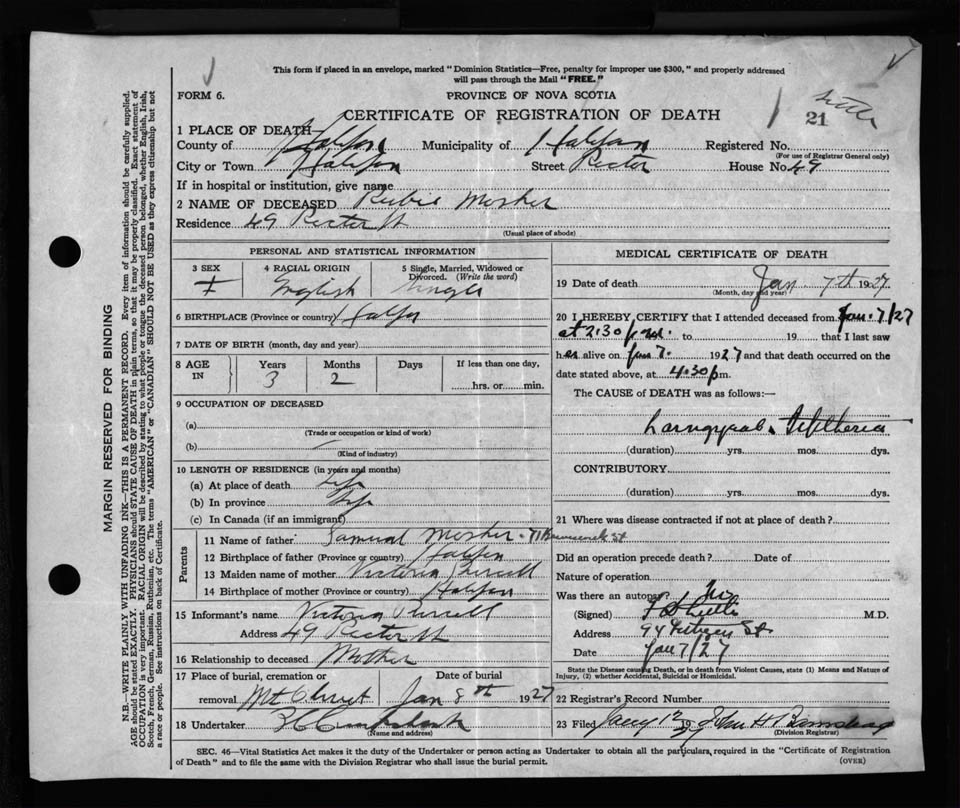 This form if placed in an envelope, marked "Dominion Statistics—Free, penalty for improper use $300," and properly addressed
will pass through the Mail "FREE."
FORM 6.
PROVINCE OF NOVA SCOTIA
CERTIFICATE OF REGISTRATION OF DEATH
21
1 PLACE OF DEATH—
County of Halifax Municipality of Halifax Registered No.
(For use of Registrar General only)
City or Town Halifax Street Rector House No. 49
If in hospital or institution, give name
2 NAME OF DECEASED Rubie Mosher
Residence 49 Rector St
(Usual place of abode)
PERSONAL AND STATISTICAL INFORMATION
3 SEX 4 RACIAL ORIGIN 5 Single, Married, Widowed or Divorced. (Write the word)
F English Single
6 BIRTHPLACE (Province or country) Halifax
7 DATE OF BIRTH (month, day and year)
8 AGE IN Years Months Days If less than one day,
3 2 hrs. or min.
9 OCCUPATION OF DECEASED
(a)
(Trade or occupation or kind of work)
(b)
(Kind of industry)
10 LENGTH OF RESIDENCE (in years and months)
(a) At place of death Life
(b) In province Life
(c) In Canada (if an immigrant)
Parents
11 Name of father Samuel Mosher - 71 Brunswick St
12 Birthplace of father (Province or country) Halifax
13 Maiden name of mother Victoria Purcell
14 Birthplace of mother (Province or country) Halifax
15 Informant's name Victoria Purcell
Address 49 Rector St
16 Relationship to deceased Mother
17 Place of burial, cremation or Date of burial
removal Mt Olivet Jan 8th 1927
18 Undertaker
(Name and address)
MEDICAL CERTIFICATE OF DEATH
19 Date of death Jan 7th 1927.
(Month, day and year)
20 I HEREBY CERTIFY that I attended deceased from Jan. 7/27
at 2:30 p.m. to 19 that I last saw
her alive on Jan 7. 1927 and that death occurred on the
date stated above, at 4.30 pm.
The CAUSE of DEATH was as follows:—
Laryngeal Diphtheria
(duration) yrs. mos. dys.
CONTRIBUTORY
(duration) yrs. mos. dys.
21 Where was disease contracted if not at place of death?
Did an operation precede death? Date of
Nature of operation
Was there an autopsy? No
(Signed) M.D.
Address 94 St
Date Jan 7/27
State the Disease causing Death, or in death from Violent Causes, state (1) Means and Nature of
Injury, (2) whether Accidental, Suicidal or Homicidal.
22 Registrar's Record Number
23 Filed John H
(Division Registrar)
SEC. 46—Vital Statistics Act makes it the duty of the Undertaker or person acting as Undertaker to obtain all the particulars, required in the "Certificate of Registration
of Death" and to file the same with the Division Registrar who shall issue the burial permit.
(OVER)
MARGIN RESERVED FOR BINDING
N.B.—WRITE PLAINLY WITH UNFADING INK—THIS IS A PERMANENT RECORD. Every item of information should be carefully supplied.
AGE should be stated EXACTLY. PHYSICIANS should STATE CAUSE OF DEATH in plain terms, so that it may be properly classified. Exact statement of
OCCUPATION is very important. RACIAL ORIGIN will be described by stating to what people or tongue the deceased person belonged, whether English, Irish,
Scotch, French, German, Russian, Ruthenian, etc. The terms "AMERICAN" or "CANADIAN" SHOULD NOT BE USED as they express citizenship but not
a race or people. See instructions on back of Certificate.